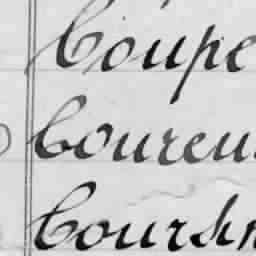 Coupe
Coureu
Coursin